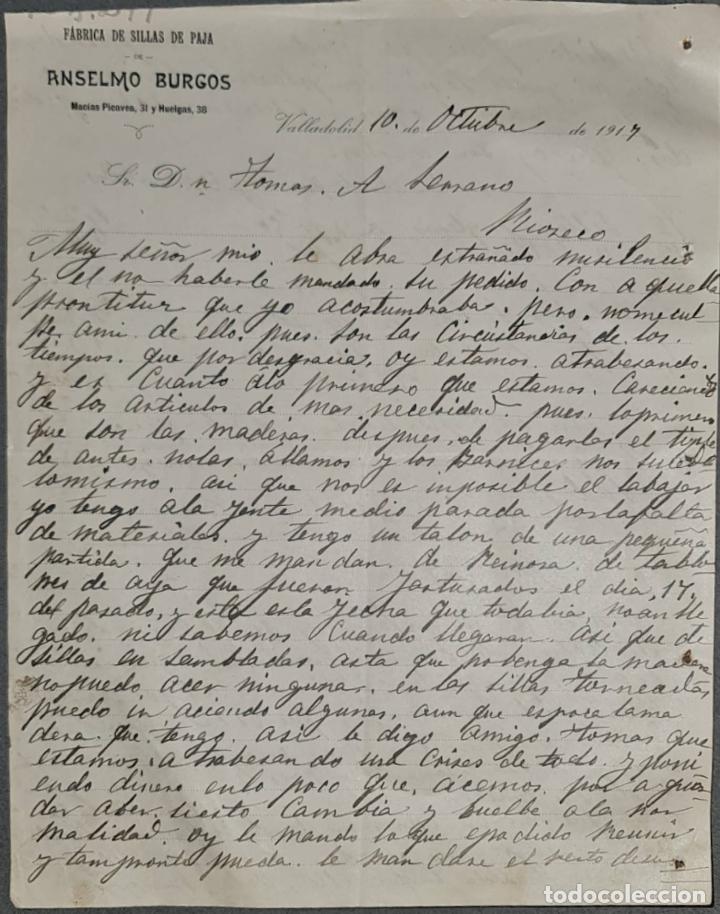 FÁBRICA DE SILLAS DE PAJA
— DE —
ANSELMO BURGOS
Macías Picavea, 31 y Huelgas, 38
Valladolid 10. de Octubre de 1917
Sr. D. n Tomas. A Serrano
Rioseco
Muy señor mio. le abra estrañado misilencio
y el no haberle mandado. su pedido. Con aquella
prontitur que yo acostumbraba. pero. nomecul
pe. ami. de ello. pues. son las Circustancias de los.
tiempos. que por desgracia, oy estamos. atrabesando.
y es Cuanto álo primero que estamos. Careciendo
de los articulos de mas necesidad. pues. loprimero
que son las. maderas. despues. de pagarlas el tiple
de antes. nolas. allamos y los Barnices nos sucede
lomismo. asi que nos es imposible el tabajar
yo tengo ala jente medio parada porlafalta
de materiales. y tengo un talon de una pequeña
partida. que me mandan. de Reinosa. de tablo
nes de aya que fueron facturados el dia, 17.
del pasado, y esta esla fecha que todabia, noan lle
gado. ni sabemos Cuando llegaran. Asi que de
sillas en sambladas, asta que nobenga la madera
nopuedo acer ningunas. en las sillas torneadas
puedo ir aciendo algunas, aun que espoca lama
dera. que. tengo. asi le digo amigo. Tomas que
estamos. atrabesando una crises de todo. y poni
endo dinero enlo poco que, ácemos. por aguar
dar aber. siesto Cambia y buelbe ala nor
malidad. oy le mando lo que epodido Reunir
y tampronto pueda. le mandare el resto desu